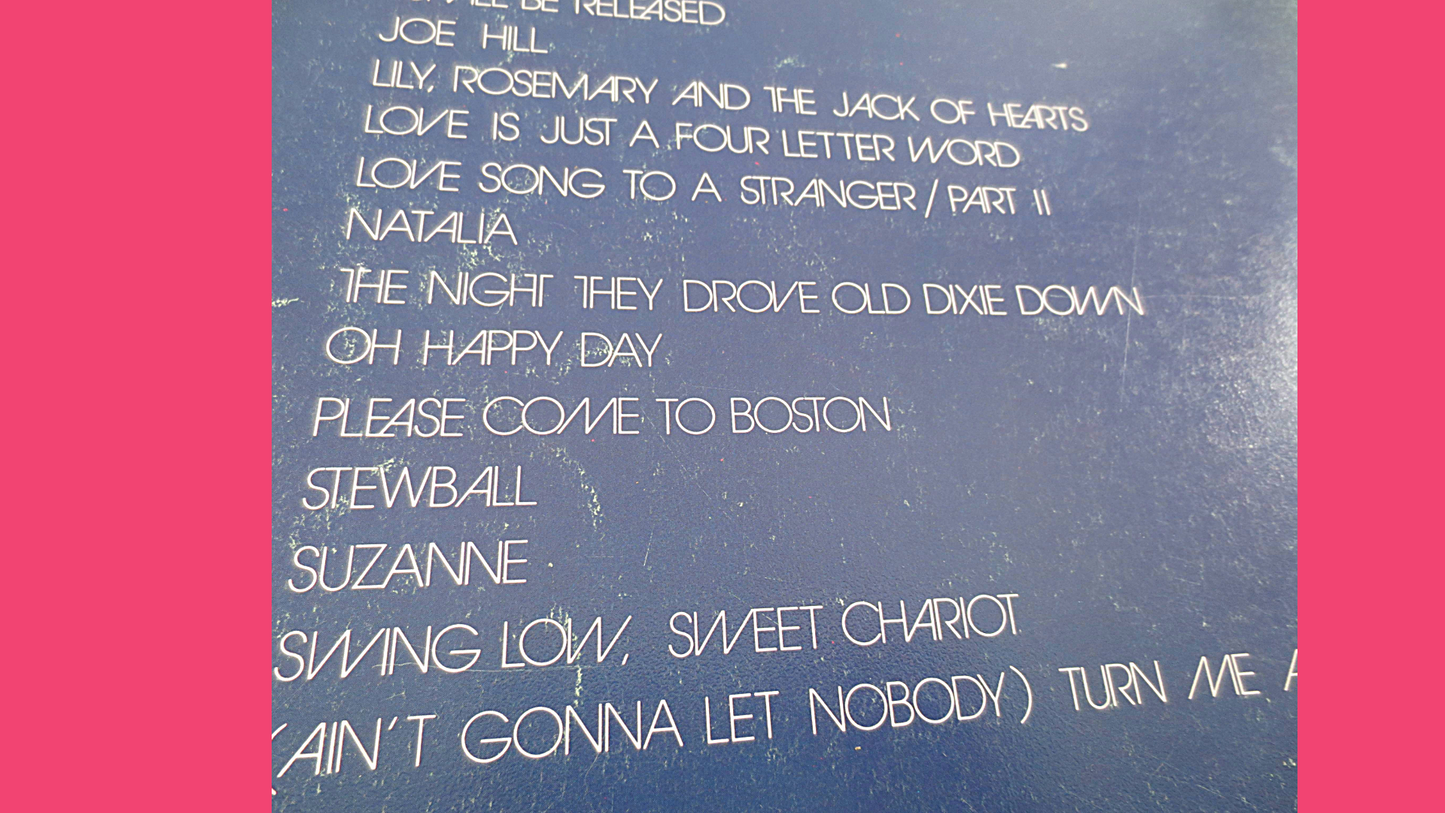 BE RELEASED
JOE HILL
LILY, ROSEMARY AND THE JACK OF HEARTS
LOVE IS JUST A FOUR LETTER WORD
LOVE SONG TO A STRANGER / PART II
NATALIA
THE NIGHT THEY DROVE OLD DIXIE DOWN
OH HAPPY DAY
PLEASE COME TO BOSTON
STEWBALL
SUZANNE
SWING LOW, SWEET CHARIOT
(AIN'T GONNA LET NOBODY) TURN ME